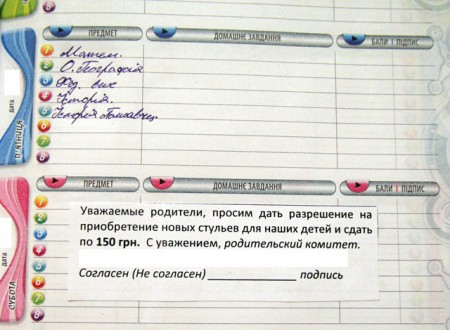 8
ПРЕДМЕТ ДОМАШНЄ ЗАВДАННЯ БАЛИ | ПІДПИС
1 Матем.
2 О. Географія
3 Фіз. вих
4 Історія.
5 Історія
6
7
8
дата
П'ЯТНИЦЯ
ПРЕДМЕТ ДОМАШНЄ ЗАВДАННЯ БАЛИ | ПІДПИС
1
2
Уважаемые родители, просим дать разрешение на
приобретение новых стульев для наших детей и сдать
по 150 грн. С уважением, родительский комитет.
Согласен (Не согласен) _______________ подпись
7
8
дата
СУБОТА